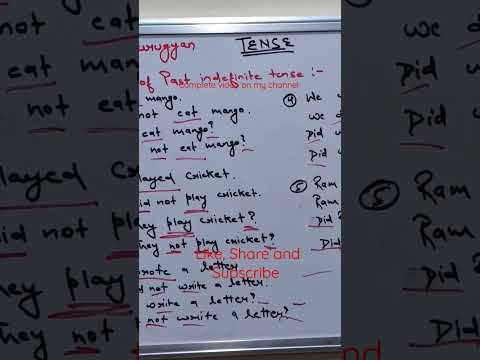 TENSE
of Past indefinite tense :-
Complete video on my channel
mango.
not eat mango.
eat mango?
not eat mango?
played cricket.
did not play cricket.
they play cricket?
they not play cricket?
wrote a letter
not write a letter.
write a letter?
not write a letter?
Like, Share and
Subscribe
④ We
We d
Did
Did
⑤ Ram
Ram
Did
Did